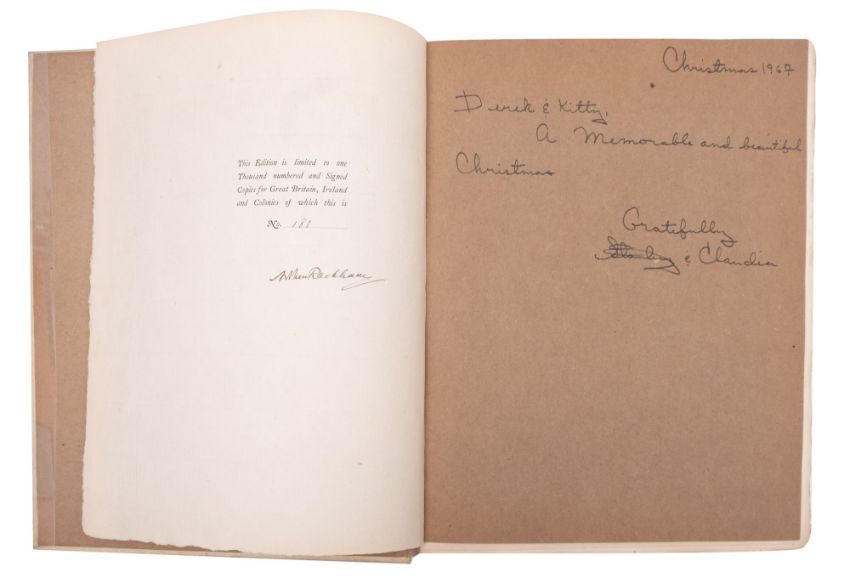 This Edition is limited to one
Thousand numbered and Signed
Copies for Great Britain, Ireland
and Colonies of which this is
No. 181
Arthur Rackham
Christmas 1967
Derek & Kitty,
A Memorable and beautiful
Christmas
Gratefully
& Claudia